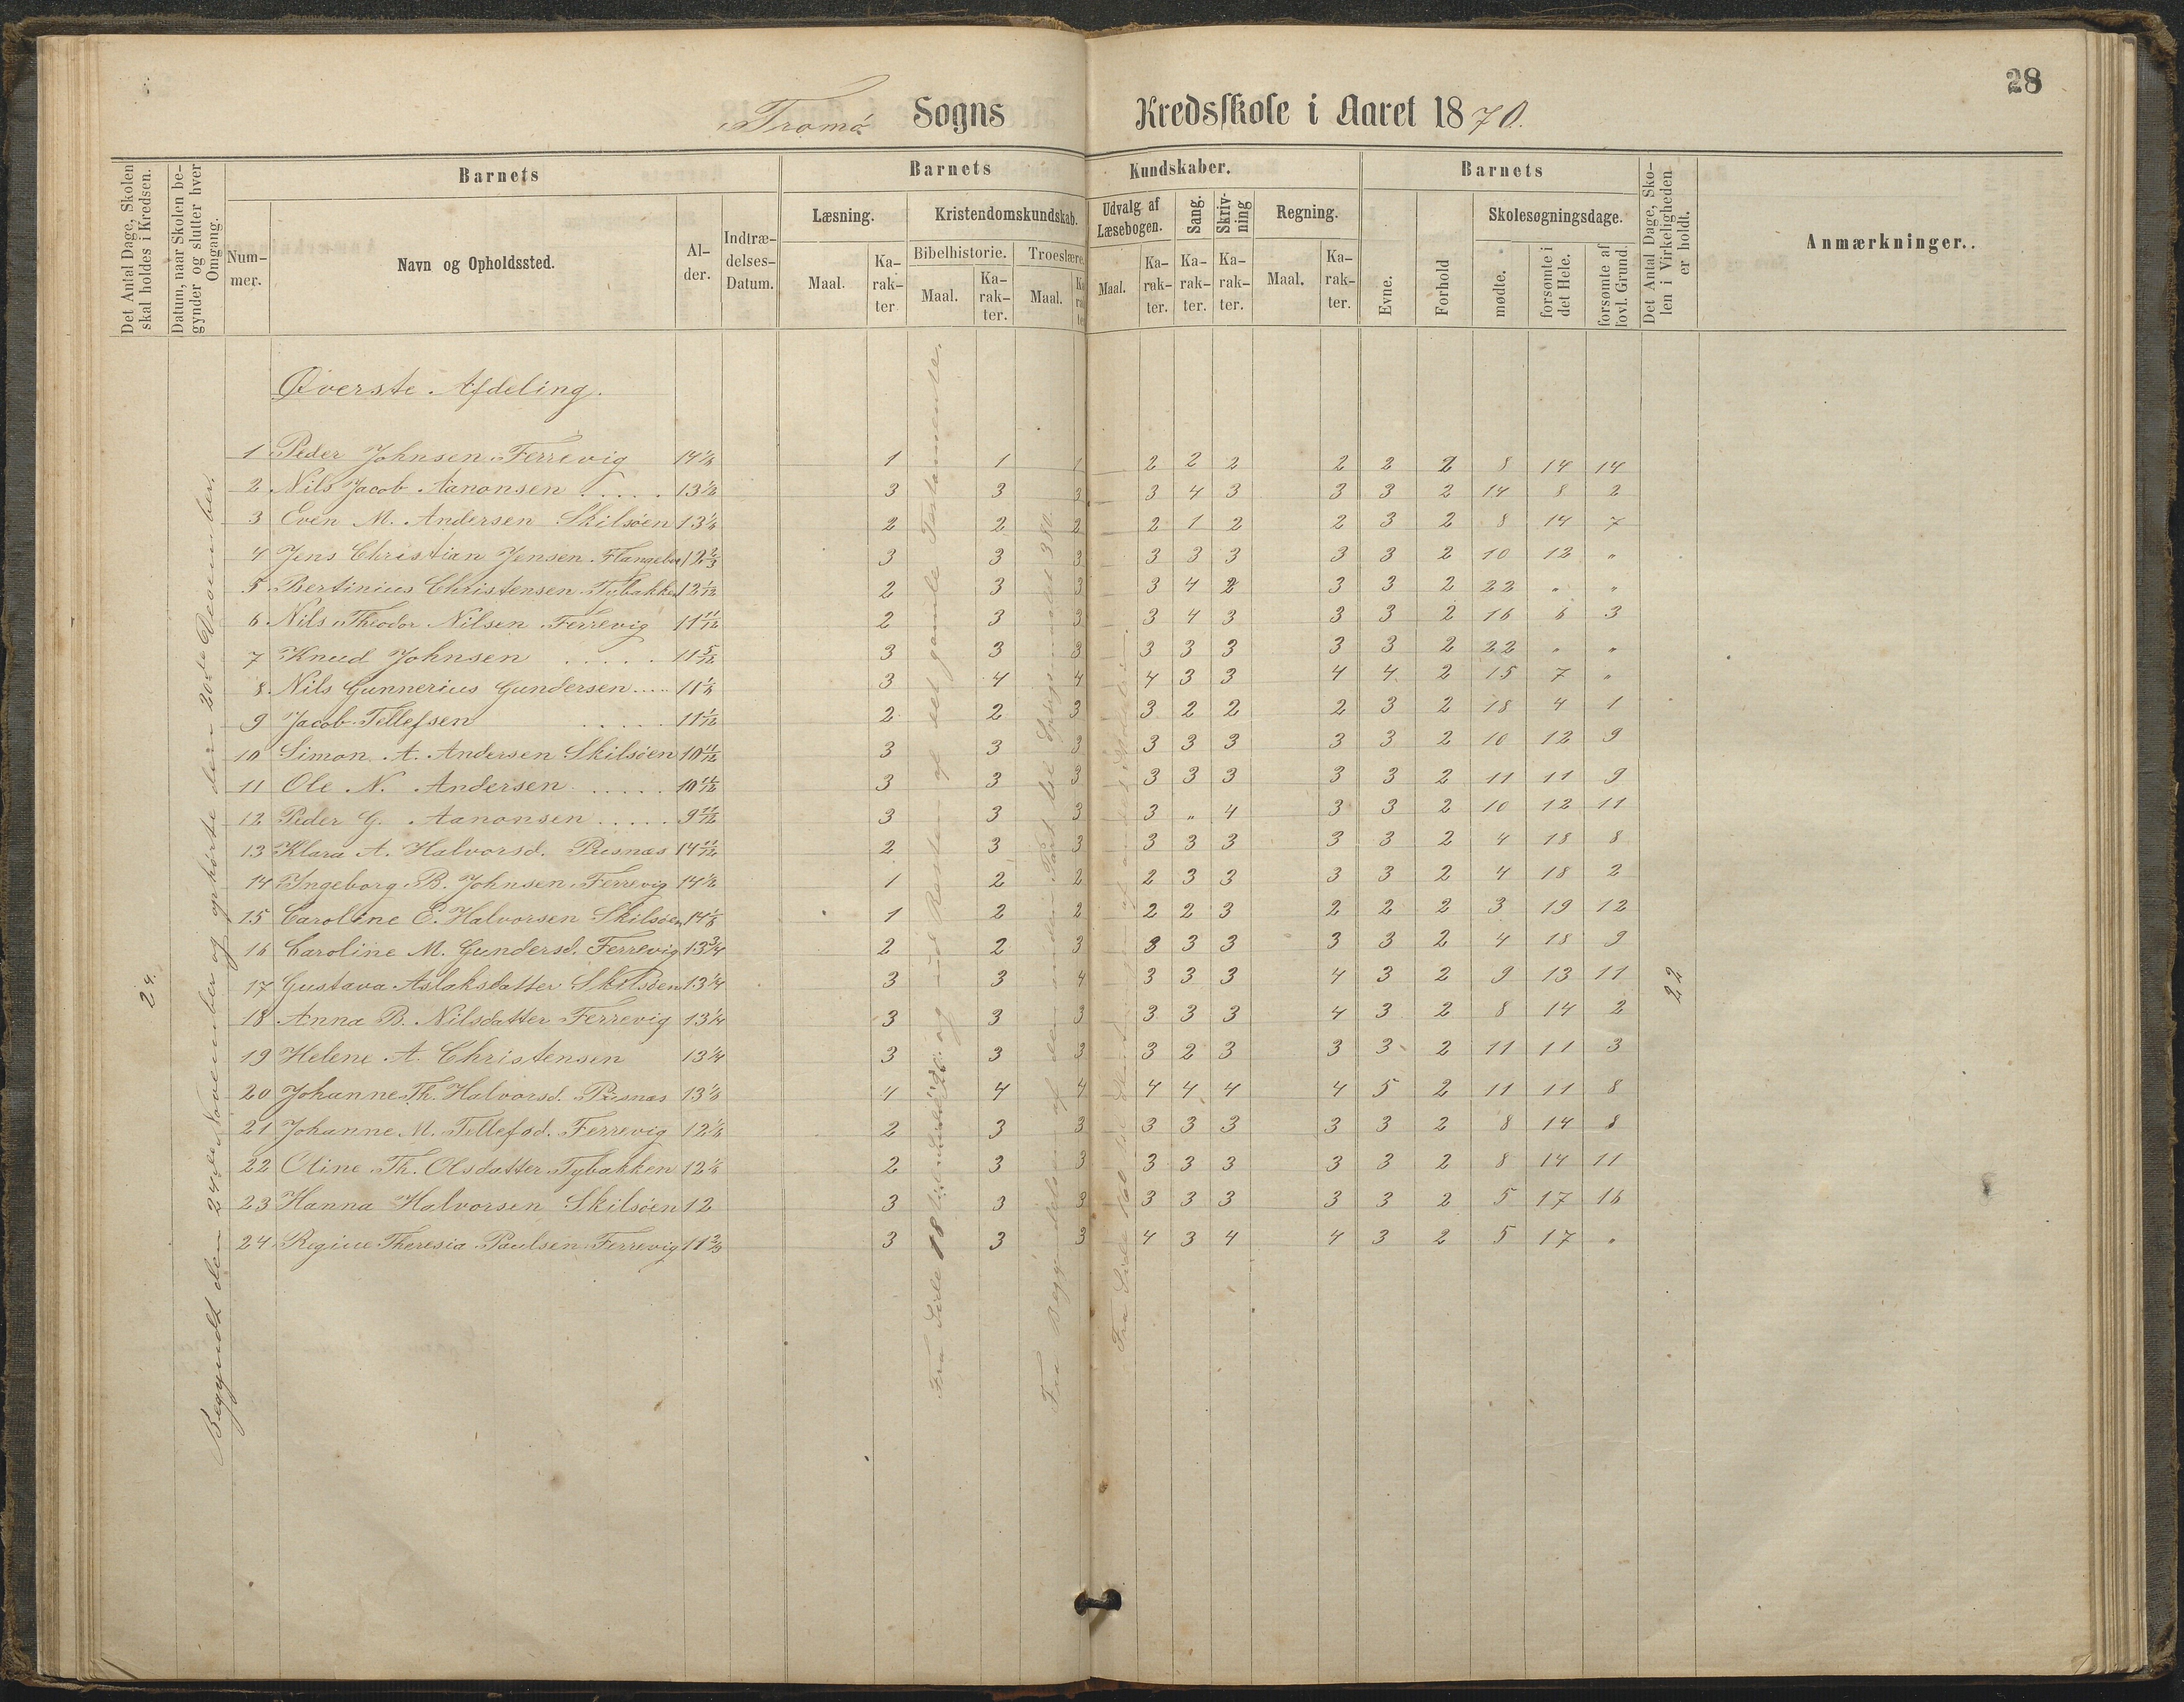 28
Tromø Sogns Kredsskole i Aaret 1870.
Det Antal Dage, Skolen skal holdes i Kredsen.
Datum, naar Skolen begynder og slutter hver Omgang.
Barnets
Num-mer.
Navn og Opholdssted.
Al-der.
Indtræ-delses-Datum.
Barnets Kundskaber.
Læsning.
Maal.
Ka-rak-ter
Kristendomskundskab.
Bibelhistorie.
Maal.
Ka-rak-ter.
Troeslære.
Maal.
Udvalg af Læsebogen.
Maal.
Ka-rak-ter.
Sang.
Ka-rak-ter.
Skriv-ning
Ka-rak-ter.
Regning.
Maal.
Ka-rak-ter.
Barnets
Evne.
Forhold
Skolesøgningsdage.
mødte.
forsømte i det Hele.
forsømte af lovl. Grund.
Det Antal Dage, Sko-len i Virkeligheden er holdt.
Anmærkninger..
Øverste Afdeling.
1 Peder Johnsen Færrevig 14 1 1 1 2 2 2 2 2 2 8 14 14
2 Nils Jacob Aanonsen . . . . . 13½ 3 3 3 3 4 3 3 3 2 14 8 2
3 Even M. Andersen Skilsöen 13 2 2 2 2 1 2 2 3 2 8 14 7
4 Jens Christian Jensen 12⅔ 3 3 3 3 3 3 3 3 2 10 12 "
5 Bertinius Christensen Tybakken 12 1/12 2 3 3 3 4 2 3 3 2 22 " "
6 Nils Theodor Nilsen Færrevig 11 11/12 2 3 3 3 4 3 3 3 2 16 6 3
7 Knud Johnsen . . . . . 11 5/12 3 3 3 3 3 3 3 3 2 22 " "
8 Nils Gunnerius Gundersen . . . . 11 3 4 4 4 3 3 4 4 2 15 7 "
9 Jacob Tellefsen . . . . . 11 1/12 2 2 3 3 2 2 2 3 2 18 4 1
10 Simon A. Andersen Skilsöen 10 11/12 3 3 3 3 3 3 3 3 2 10 12 9
11 Ole N. Andersen . . . . . 10 3 3 3 3 3 3 3 3 2 11 11 9
12 Peder G. Aanonsen . . . . . 9 11/12 3 3 3 3 " 4 3 3 2 10 12 11
13 Klara A. Halvorsd. Pusnæs 14 11/12 2 3 3 3 3 3 3 3 2 4 18 8
14 Ingeborg B. Johnsen Færrevig 14½ 1 2 2 2 3 3 3 3 2 4 18 2
15 Caroline E. Halvorsen Skilsöen 14 1 2 2 2 2 3 2 2 2 3 19 12
16 Caroline M. Gundersd. Færrevig 13¾ 2 2 3 3 3 3 3 3 2 4 18 9
17 Gustava Aslaksdatter Skilsöen 13¼ 3 3 4 3 3 3 4 3 2 9 13 11
18 Anna B. Nilsdatter Færrevig 13¼ 3 3 3 3 3 3 4 3 2 8 14 2
19 Helene A. Christensen 13¼ 3 3 3 3 2 3 3 3 2 11 11 3
20 Johanne Th. Halvorsd. Pusnæs 13 4 4 4 4 4 4 4 5 2 11 11 8
21 Johanne M. Tellefsd. Færrevig 12 2 3 3 3 3 3 3 3 2 8 14 8
22 Oline Th. Olsdatter Tybakken 12 2 3 3 3 3 3 3 3 2 8 14 11
23 Hanna Halvorsen Skilsöen 12 3 3 3 3 3 3 3 3 2 5 17 16
24 Regine Theresia Paulsen Færrevig 11⅔ 3 3 3 4 3 4 4 3 2 5 17 "
24.
Begyndt den 24de November og ophørte den 20de December.
Fra Side 18 til og med Resten af det gamle Testamente.
Fra Begyndelsen af den anden Part til Spørgsmaalet 380.
Fra Side 160 til
22